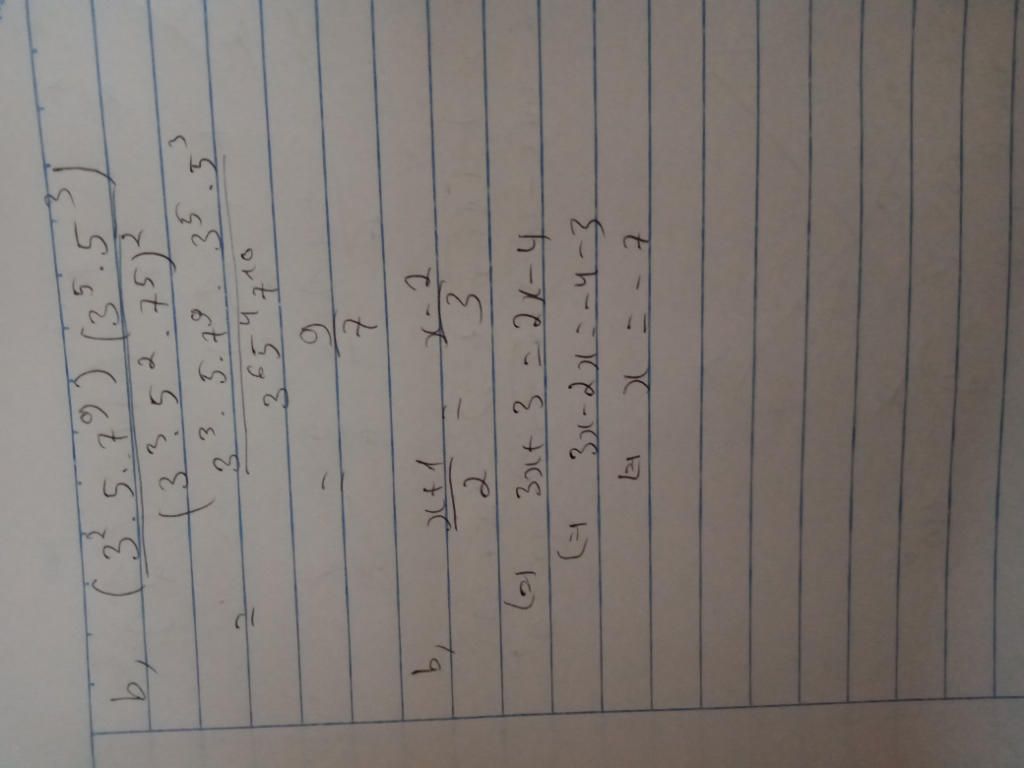 b, (3³ . 5 . 7⁹) (3⁵ . 5³)
(3³ . 5² . 7⁵)²
= 3³ . 5 . 7⁹ . 3⁵ . 5³
3⁶ 5⁴ 7¹⁰
= 9
7
b, x+1 = x-2
2 3
(=) 3x + 3 = 2x - 4
(=) 3x - 2x = -4 - 3
(=) x = -7